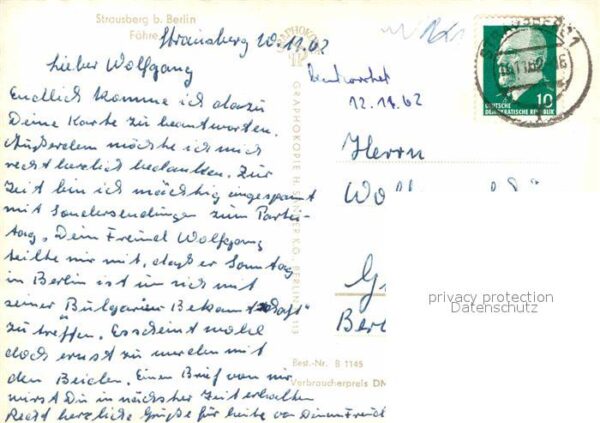 Strausberg b. Berlin
Fähre
Strausberg 10.11.62
Lieber Wolfgang
Endlich komme ich dazu
Deine Karte zu beantworten.
Außerdem möchte ich mich
recht herzlich bedanken. Zur
Zeit bin ich mächtig eingespannt
mit Sondersendungen zum Partei-
tag. Dein Freund Wolfgang
teilte mir mit, daß er Sonntag
in Berlin ist um sich mit
seiner "Bulgarien Bekanntschaft"
zu treffen. Es scheint wohl
doch ernst zu werden mit
den Beiden. Einen Brief von mir
wirst Du in nächster Zeit erhalten
Recht herzliche Grüße für heute von Deinem Freund
GRAPHOKOPIE H. KG. BERLIN
Beantwortet
12.11.62
STRAUSBERG 1
DEUTSCHE
DEMOKRATISCHE REPUBLIK
10
Herrn
privacy protection
Datenschutz
Best.-Nr. B 1145
Verbraucherpreis DM